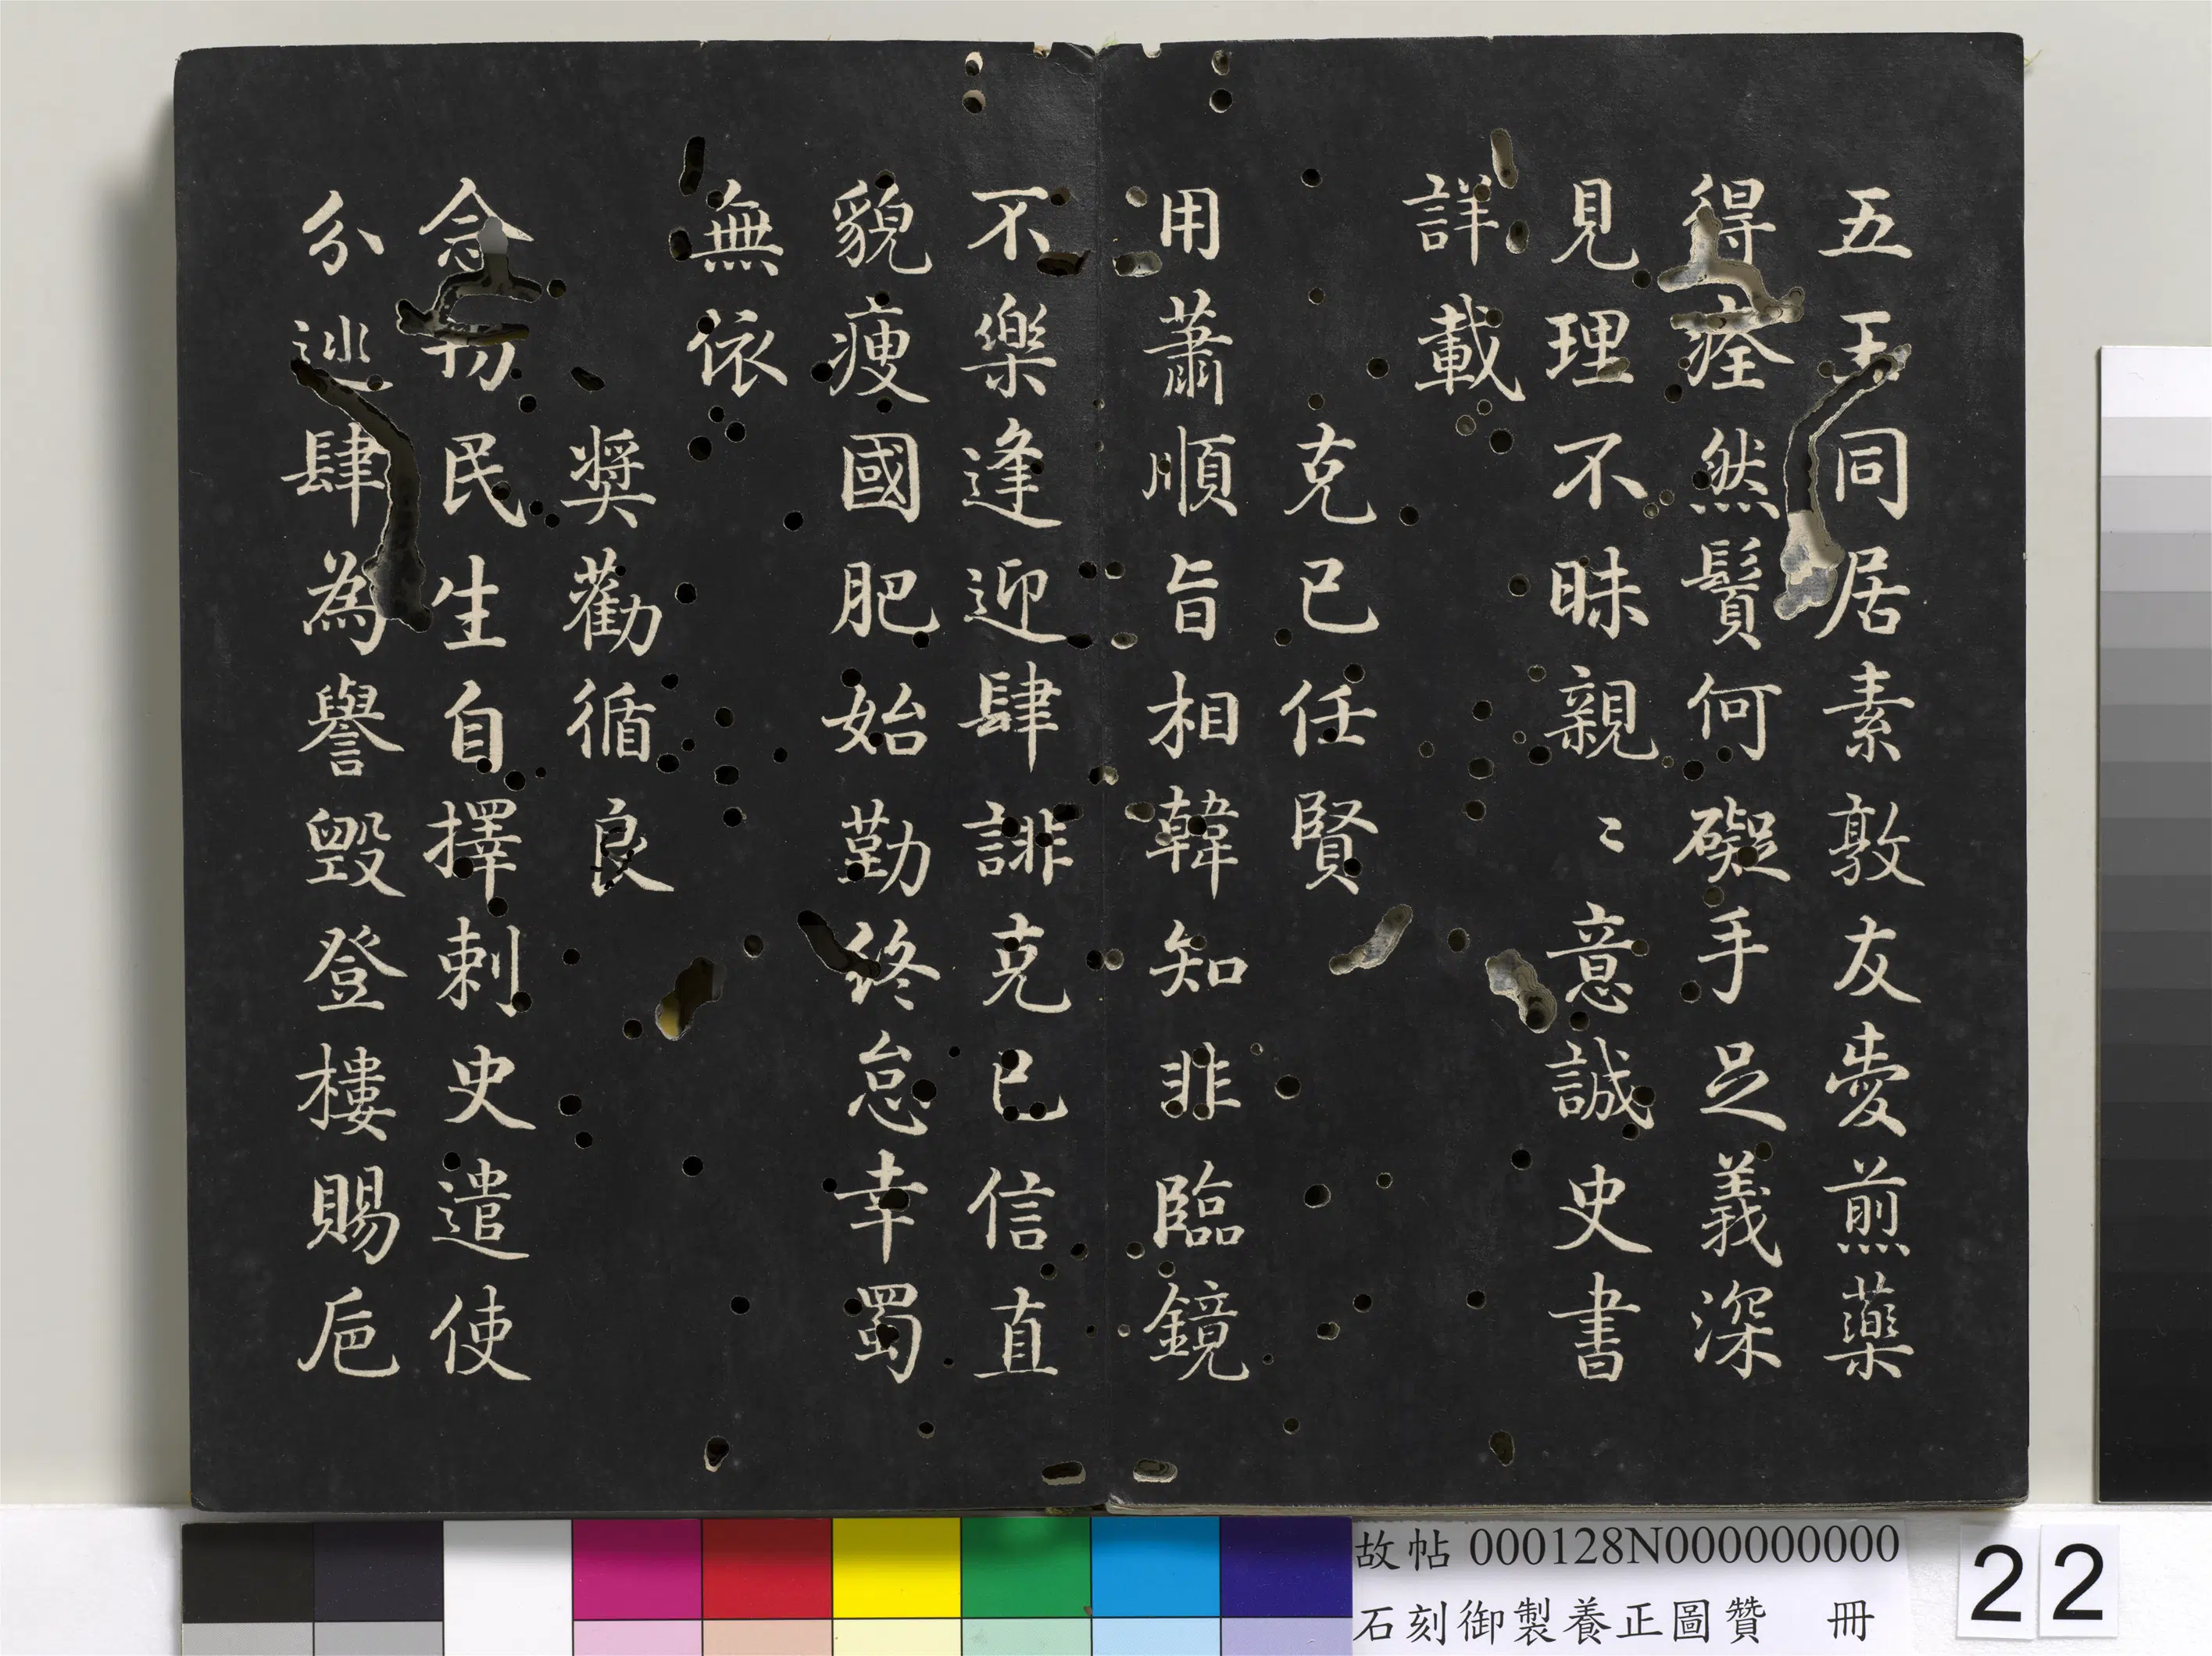 五王同居素敦友愛煎藥
得痊然鬚何礙手足義深
見理不昧親〻意誠史書
詳載
克己任賢
用蕭順旨相韓知非臨鏡
不樂逢迎肆誹克己信直
貌瘦國肥始勤終怠幸蜀
無依
奬勸循良
念切民生自擇刺史遣使
分巡肆為譽毀登樓賜巵
故帖 000128N000000000
石刻御製養正圖贊 冊
22